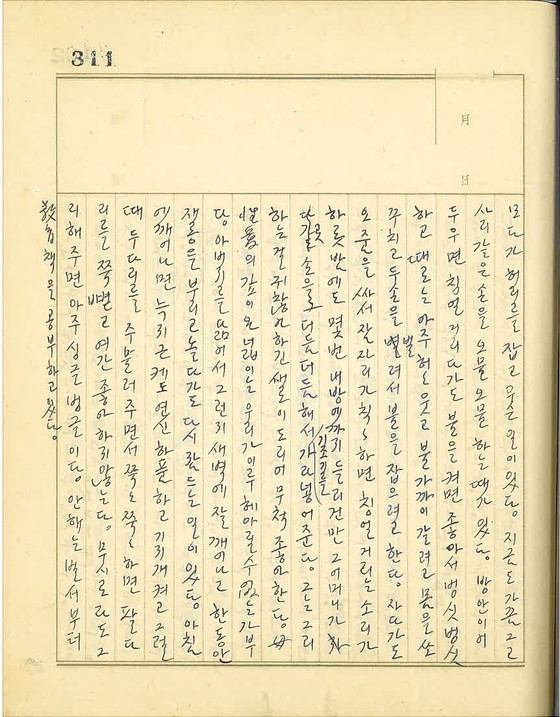 311
月
日
모다가 허리를 잡고 웃은 일이 있다. 지금도 가끔 그 고
사리 같은 손을 오물오물 하는 때가 있다. 방안이 어
두우면 칭얼거리다가도 불을 켜면 좋아서 벙싯벙싯
하고 때로는 아주 허허 웃고 불가까이 갈려고 몸을 쏘
꾸치고 두손을 벌려서 불을 잡으려고 한다. 자다가도
오줌을 싸서 잠자리가 척척하면 칭얼거리는 소리가
하룻밤에도 몇번 내방에까지 들리건만 그 어머니가
다갈 손을 더듬더듬해서 기저귀를 가라넣어준다. 그는 그리
하는 걸 귀찮아하긴 새로이 도리어 무척 좋아한다. 母
性愛의 깊이와 넓이는 우리가 이루 헤아릴수없는가부
다. 아버지를 닮어서 그런지 새벽에 잘 깨어나고 한동안
재롱을 부리고 놀다가도 다시 잠드는 일이 있다. 아침
에 깨어나면 늙은이 연신 하품하고 기지개켜고 그럴
때 두 다리를 주물러 주면서 쭉쭉 쭉쭉하면 팔다
리를 쭉 뻗고 여간 좋아하지 않는다. 무시로라도 그
리 해주면 아주 싱글벙글이다. 안해는 벌서부터
敎育책을 공부하고 있다.